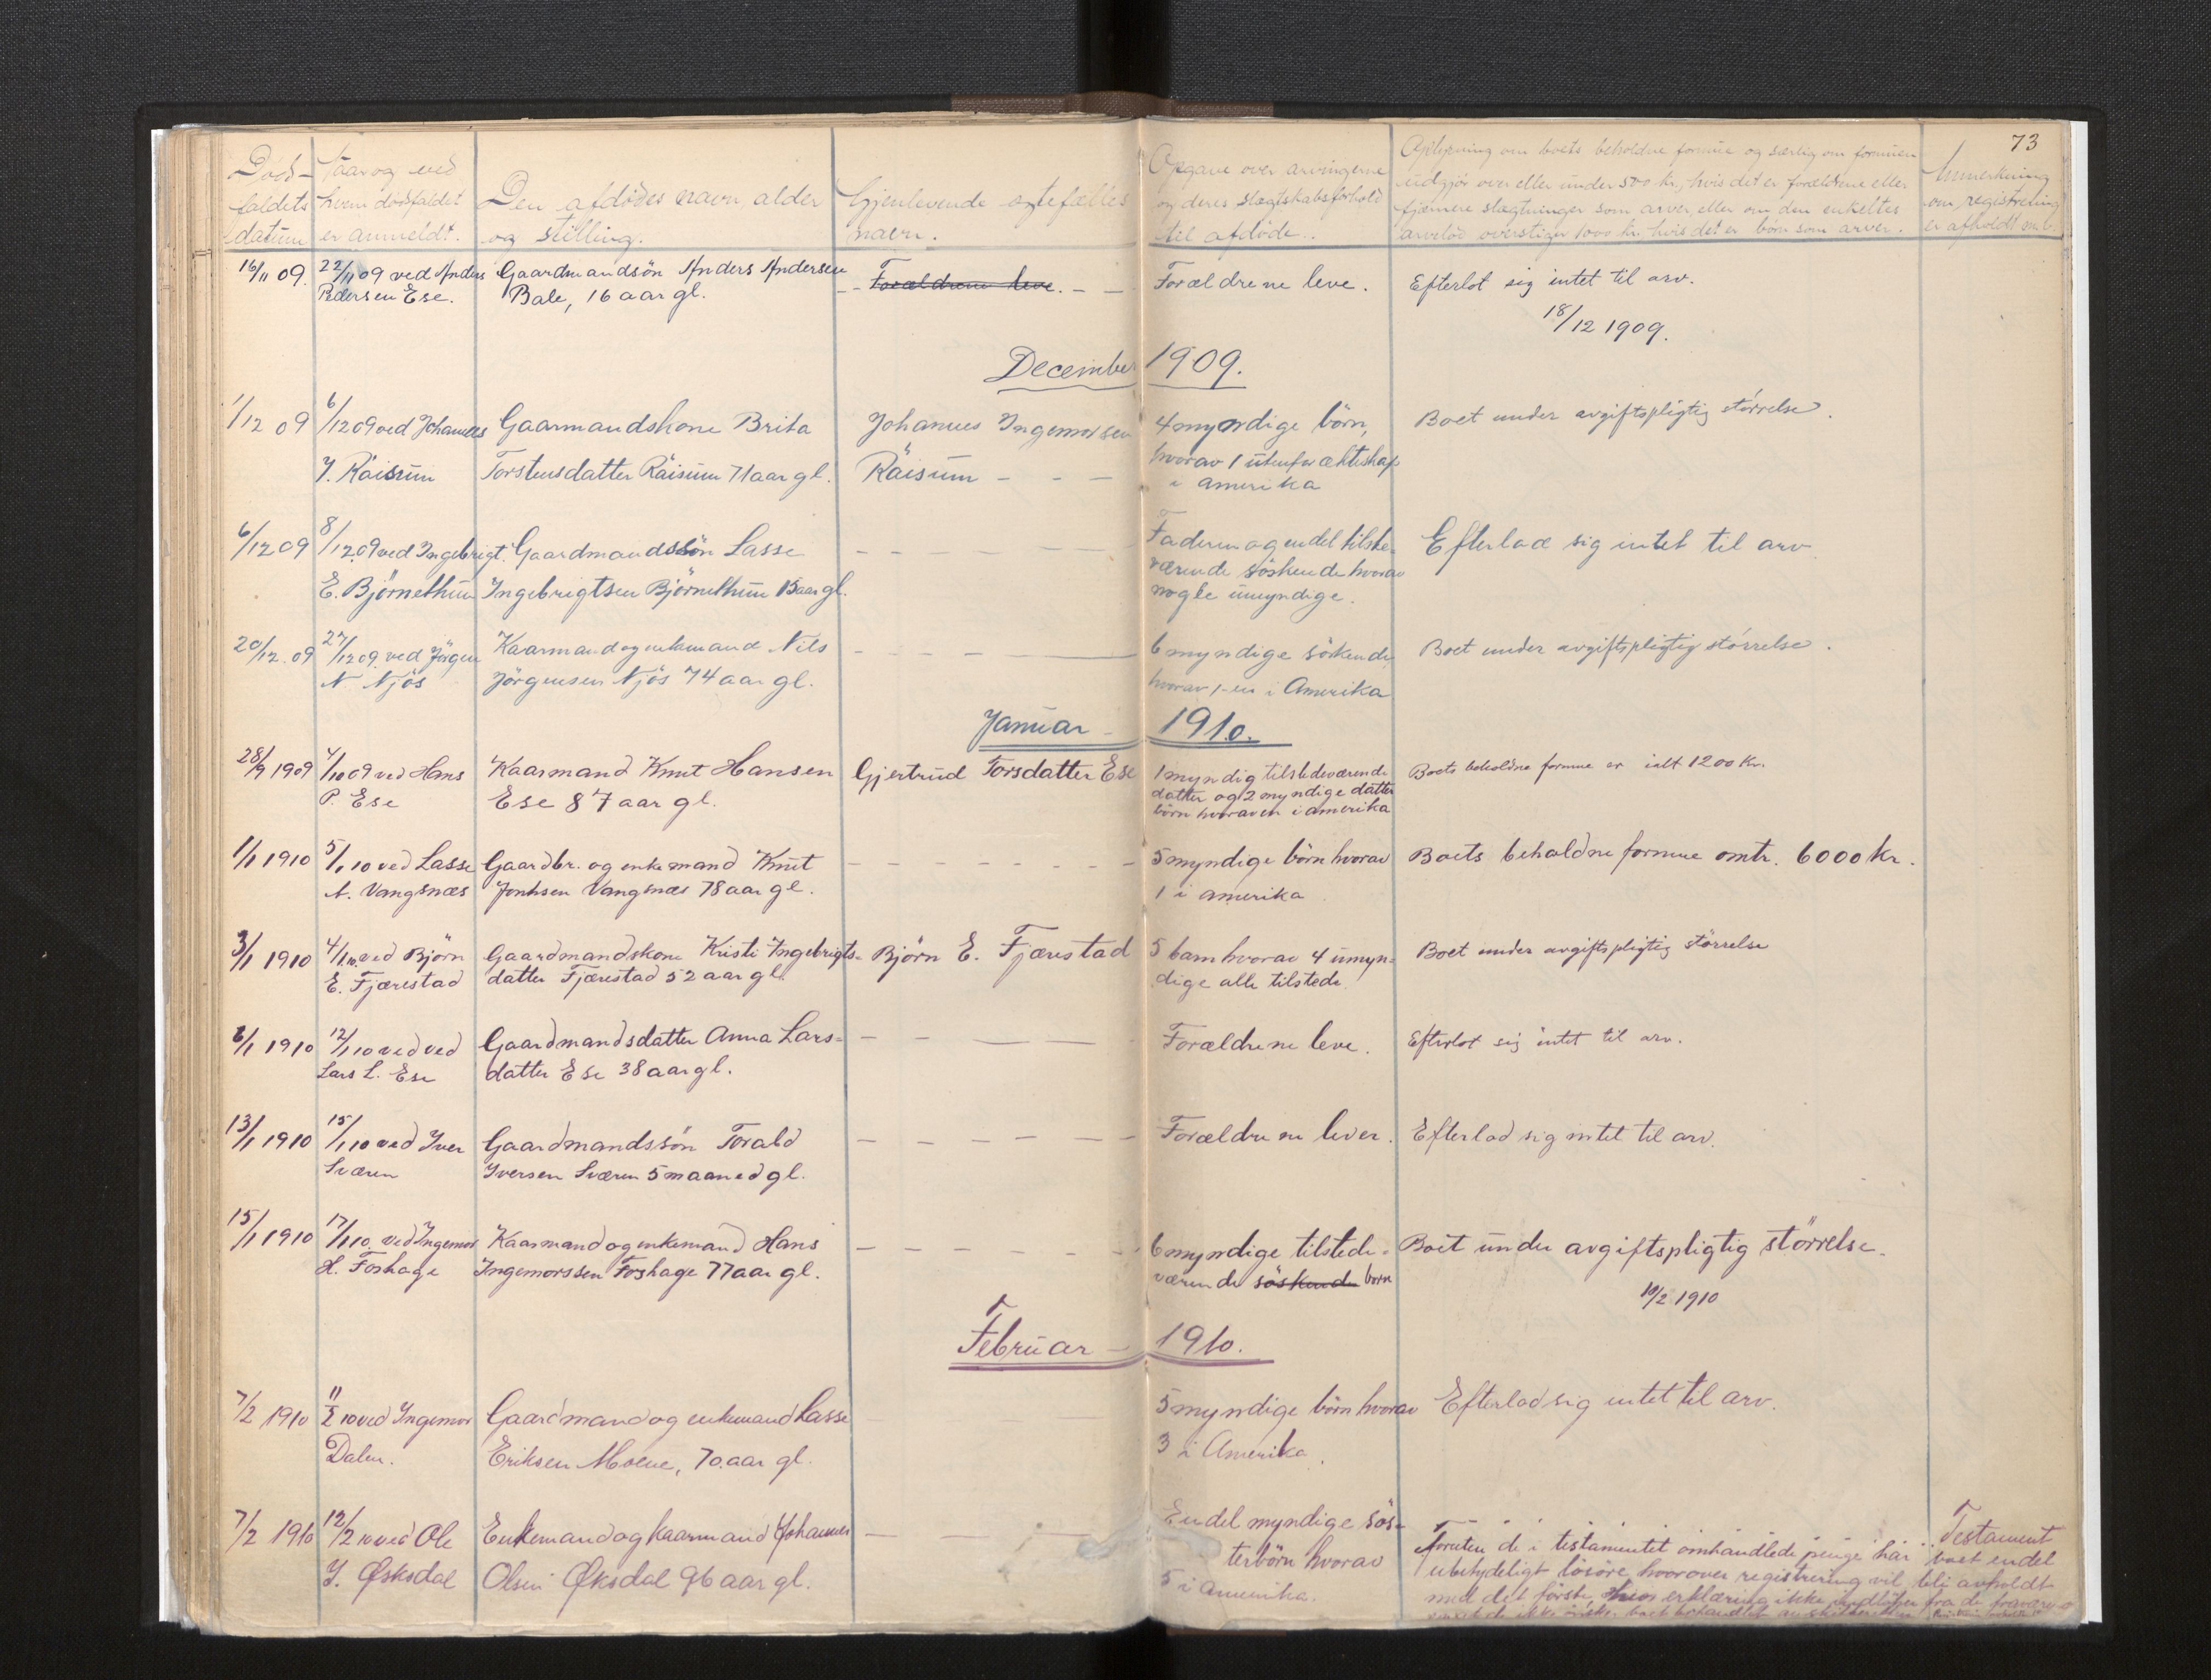 73
Døds-
faldets
datum
Naar og ved
hvem dødsfaldet
er anmeldt.
Den afdødes navn, alder
og stilling.
Gjenlevende egtefælles
navn.
Opgave over arvingerne
og deres slægtskabsforhold
til afdøde.
Oplysning om boets beholdne formue og særlig om formuen
udgjør over eller under 500 kr, hvis det er forældrene eller
fjærnere slægtninger som arver, eller om den enkeltes
arvelod overstiger 1000 kr. hvis det er børn som arver.
Anmerkning
om registrering
er afholdt m.v.
16/11 09.
22/11 09 ved Anders
Pedersen Ese.
Gaardmandsön Anders Andersen
Bale, 16 aar gl.
Forældrene leve.
Forældrene leve.
Efterlot sig intet til arv.
18/12 1909.
December 1909.
1/12 09
6/12 09 ved Johannes
J. Räisum
Gaarmandskone Brita
Torstensdatter Räisum 71 aar gl.
Johannes Ingemorsen
Räisum - - -
4 myndige börn,
hvorav 1 utenfor ækteskap
i amerika
Boet under avgiftspligtig störrelse.
6/12 09
8/12 09 ved Ingebrigt
E. Björnethun
Gaardmandssön Lasse
Ingebrigtsen Björnethun 15 aar gl.
Faderen og endel tilste-
værende söskende hvorav
nogle umyndige.
Efterlod sig intet til arv.
20/12. 09
27/12 09. ved Jörgen
N. Njös
Kaarmand og enkemand Nils
Jörgensen Njös 74 aar gl.
6 myndige söskende,
hvorav 1-en i Amerika
Boet under avgiftspligtig störrelse.
Januar - 1910.
28/9 1909
4/10 09 ved Hans
P. Ese
Kaarmand Knut Hansen
Ese 87 aar gl.
Gjertrud Torsdatter Ese
1 myndig tilstedeværende
datter og 2 myndige datter
börn hvorav en i amerika
Boets beholdne formue er ialt 1200 Kr.
1/1 1910
5/1 10 ved Lasse
A. Vangsnæs
Gaardbr. og enkemand Knut
Jonhsen Vangsnæs 78 aar gl.
5 myndige börn hvorav
1 i amerika
Boets beholdne formue omtr. 6000 kr.
3/1 1910
4/1 10. ved Björn
E. Fjærestad
Gaardmandskone Kristi Ingebrigts-
datter Fjærestad 52 aar gl.
Björn E. Fjærestad
5 barn hvorav 4 umyn-
dige alle tilstede.
Boet under avgiftspligtig störrelse
6/1 1910
12/1 10 ved ved
Lars L. Ese
Gaardmandsdatter Anna Lars-
datter Ese 38 aar gl.
Forældrene leve.
Efterlot sig intet til arv.
13/1 1910
15/1 10 ved Iver
Sværen
Gaardmandssön Torald
Iversen Sværen 5 maaned gl.
Forældrene lever.
Efterlod sig intet til arv.
15/1 1910
17/1 10. ved Ingemor
H. Foshage
Kaarmand og enkemand Hans
Ingemorssen Foshage 77 aar gl.
6 myndige tilstede-
værende söskende born
Boet under avgiftspligtig störrelse.
10/2 1910
Februar - 1910.
7/2 1910
11/2 10 ved Ingemor
Dalen.
Gaardmand og enkemand Lasse
Eriksen Moene, 70. aar gl.
5 myndige börn hvorav
3 i Amerika.
Efterlod sig intet til arv.
7/2 1910
12/2 10 ved Ole
J. Øsksdal
Enkemand og kaarmand Johannes
Olsen Øksdal 96 aar gl.
Endel myndige sös-
terbörn hvorav
5 i Amerika.
Testament
Foruten de i testamentet omhandlede penge har boet endel
ubetydeligt lösöre hvorover registrering vil bli avholdt
med det förste, erklæring ikke indlöper fra de